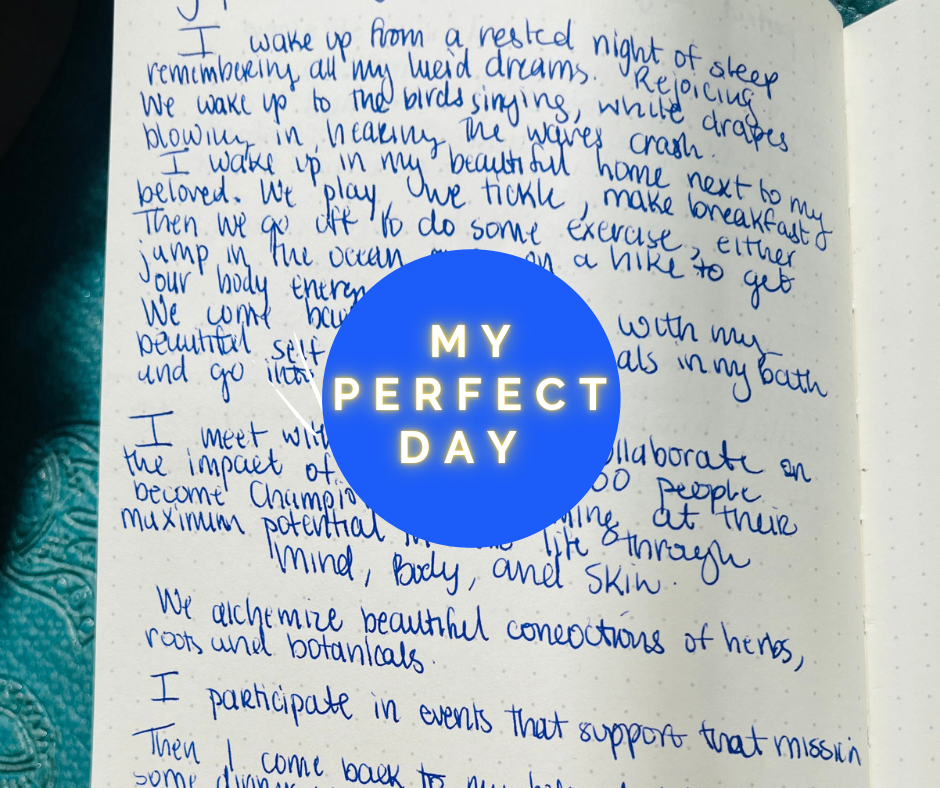 I wake up from a rested night of sleep
remembering all my weid dreams. Rejoicing
We wake up to the birds singing, white drapes
blowing in, hearing the waves crash.
I wake up in my beautiful home next to my
beloved. We play, we tickle, make breakfast
Then we go off to do some exercise, either
jump in the ocean on a hike to get
our body energy
We come with my
beautiful self als in my bath
and go into
MY
PERFECT
DAY
I meet with ollaborate on
the impact of 00 people
become Champio ming at their
maximum potential life through
mind, Body, and Skin.
We alchemize beautiful concoctions of herbs,
roots and botanicals.
I participate in events that support that mission
Then I come back to my
some